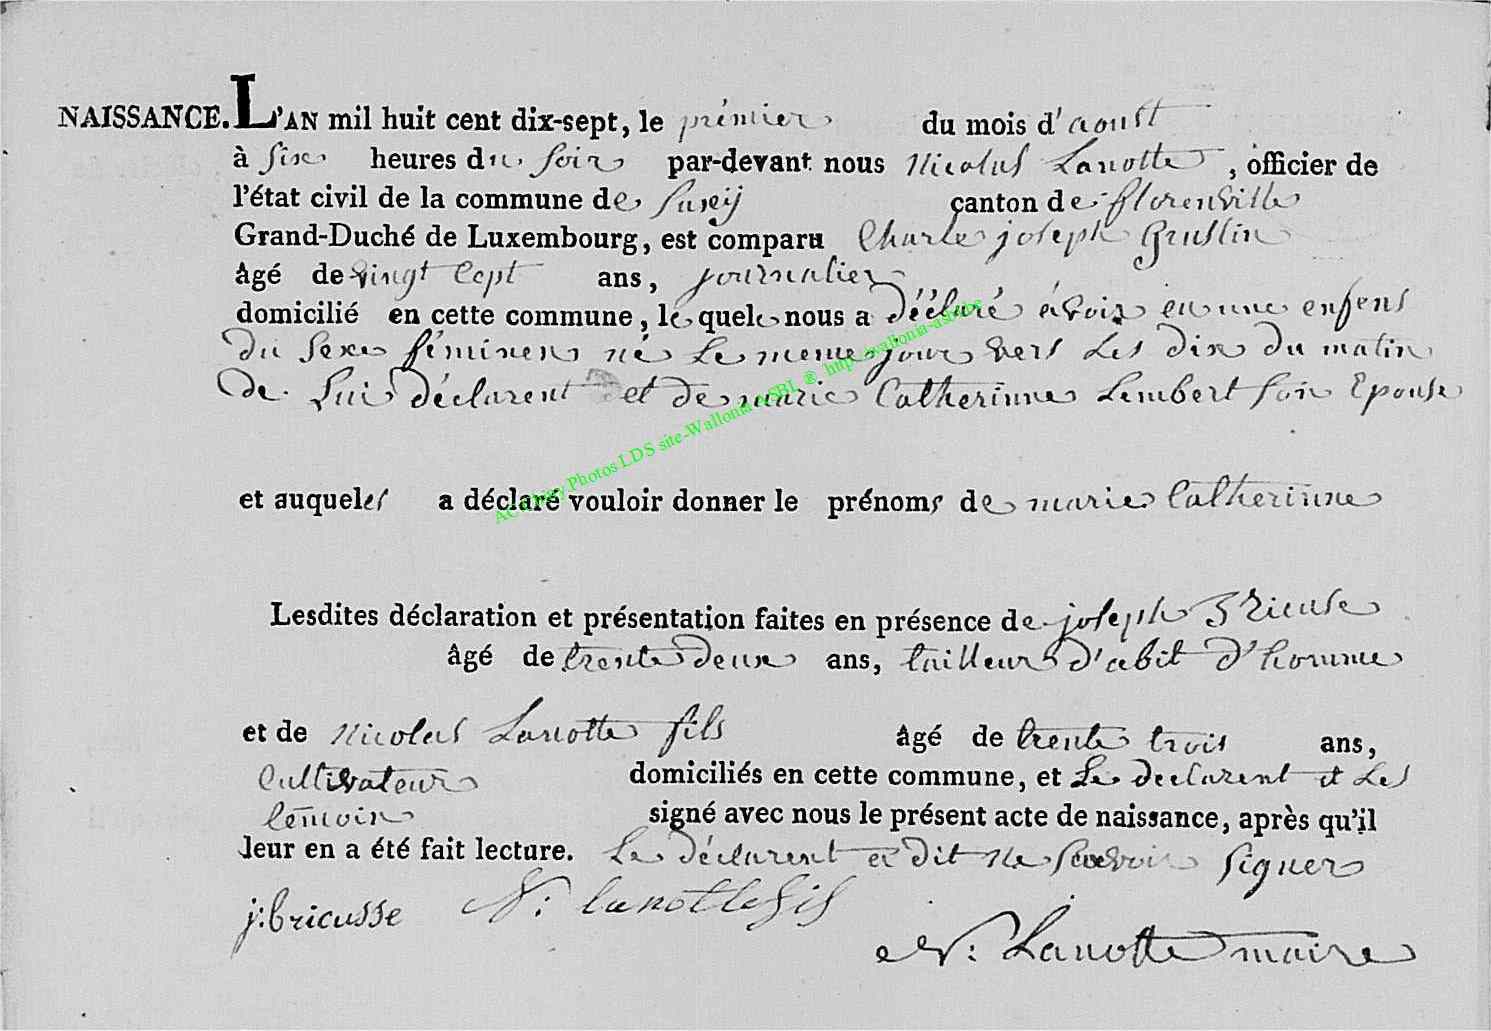 NAISSANCE. L'AN mil huit cent dix-sept, le prémier du mois d'aoust
à six heures du soir par-devant nous Nicolas Lanotte, officier de
l'état civil de la commune de Suxÿ canton de florenville
Grand-Duché de Luxembourg, est comparu Charle joseph Gruslin
âgé de vingt Cept ans, journalier
domicilié en cette commune, le quele nous a déclaré avoir eu une enfens
Du Sexe féminen né Le meme jour vers Les dix du matin
De Lui déclarent et de marie Catherinne Lambert son Epouse
et auqueles a déclaré vouloir donner le prénoms de marie Catherinne
Lesdites déclaration et présentation faites en présence de joseph Bricuse
âgé de trente deux ans, tailleur d'abit d'homme
et de Nicolas Lanotte fils âgé de trente trois ans,
Cultivateur domiciliés en cette commune, et Le declarent et Les
témoin signé avec nous le présent acte de naissance, après qu'il
leur en a été fait lecture. Le déclarent a dit ne savoir signer
j: bricusse N: lanotte fils
N: Lanotte maire
ASBL ® http://wallonia-asbl.be
Photos LDS site-Wallonia